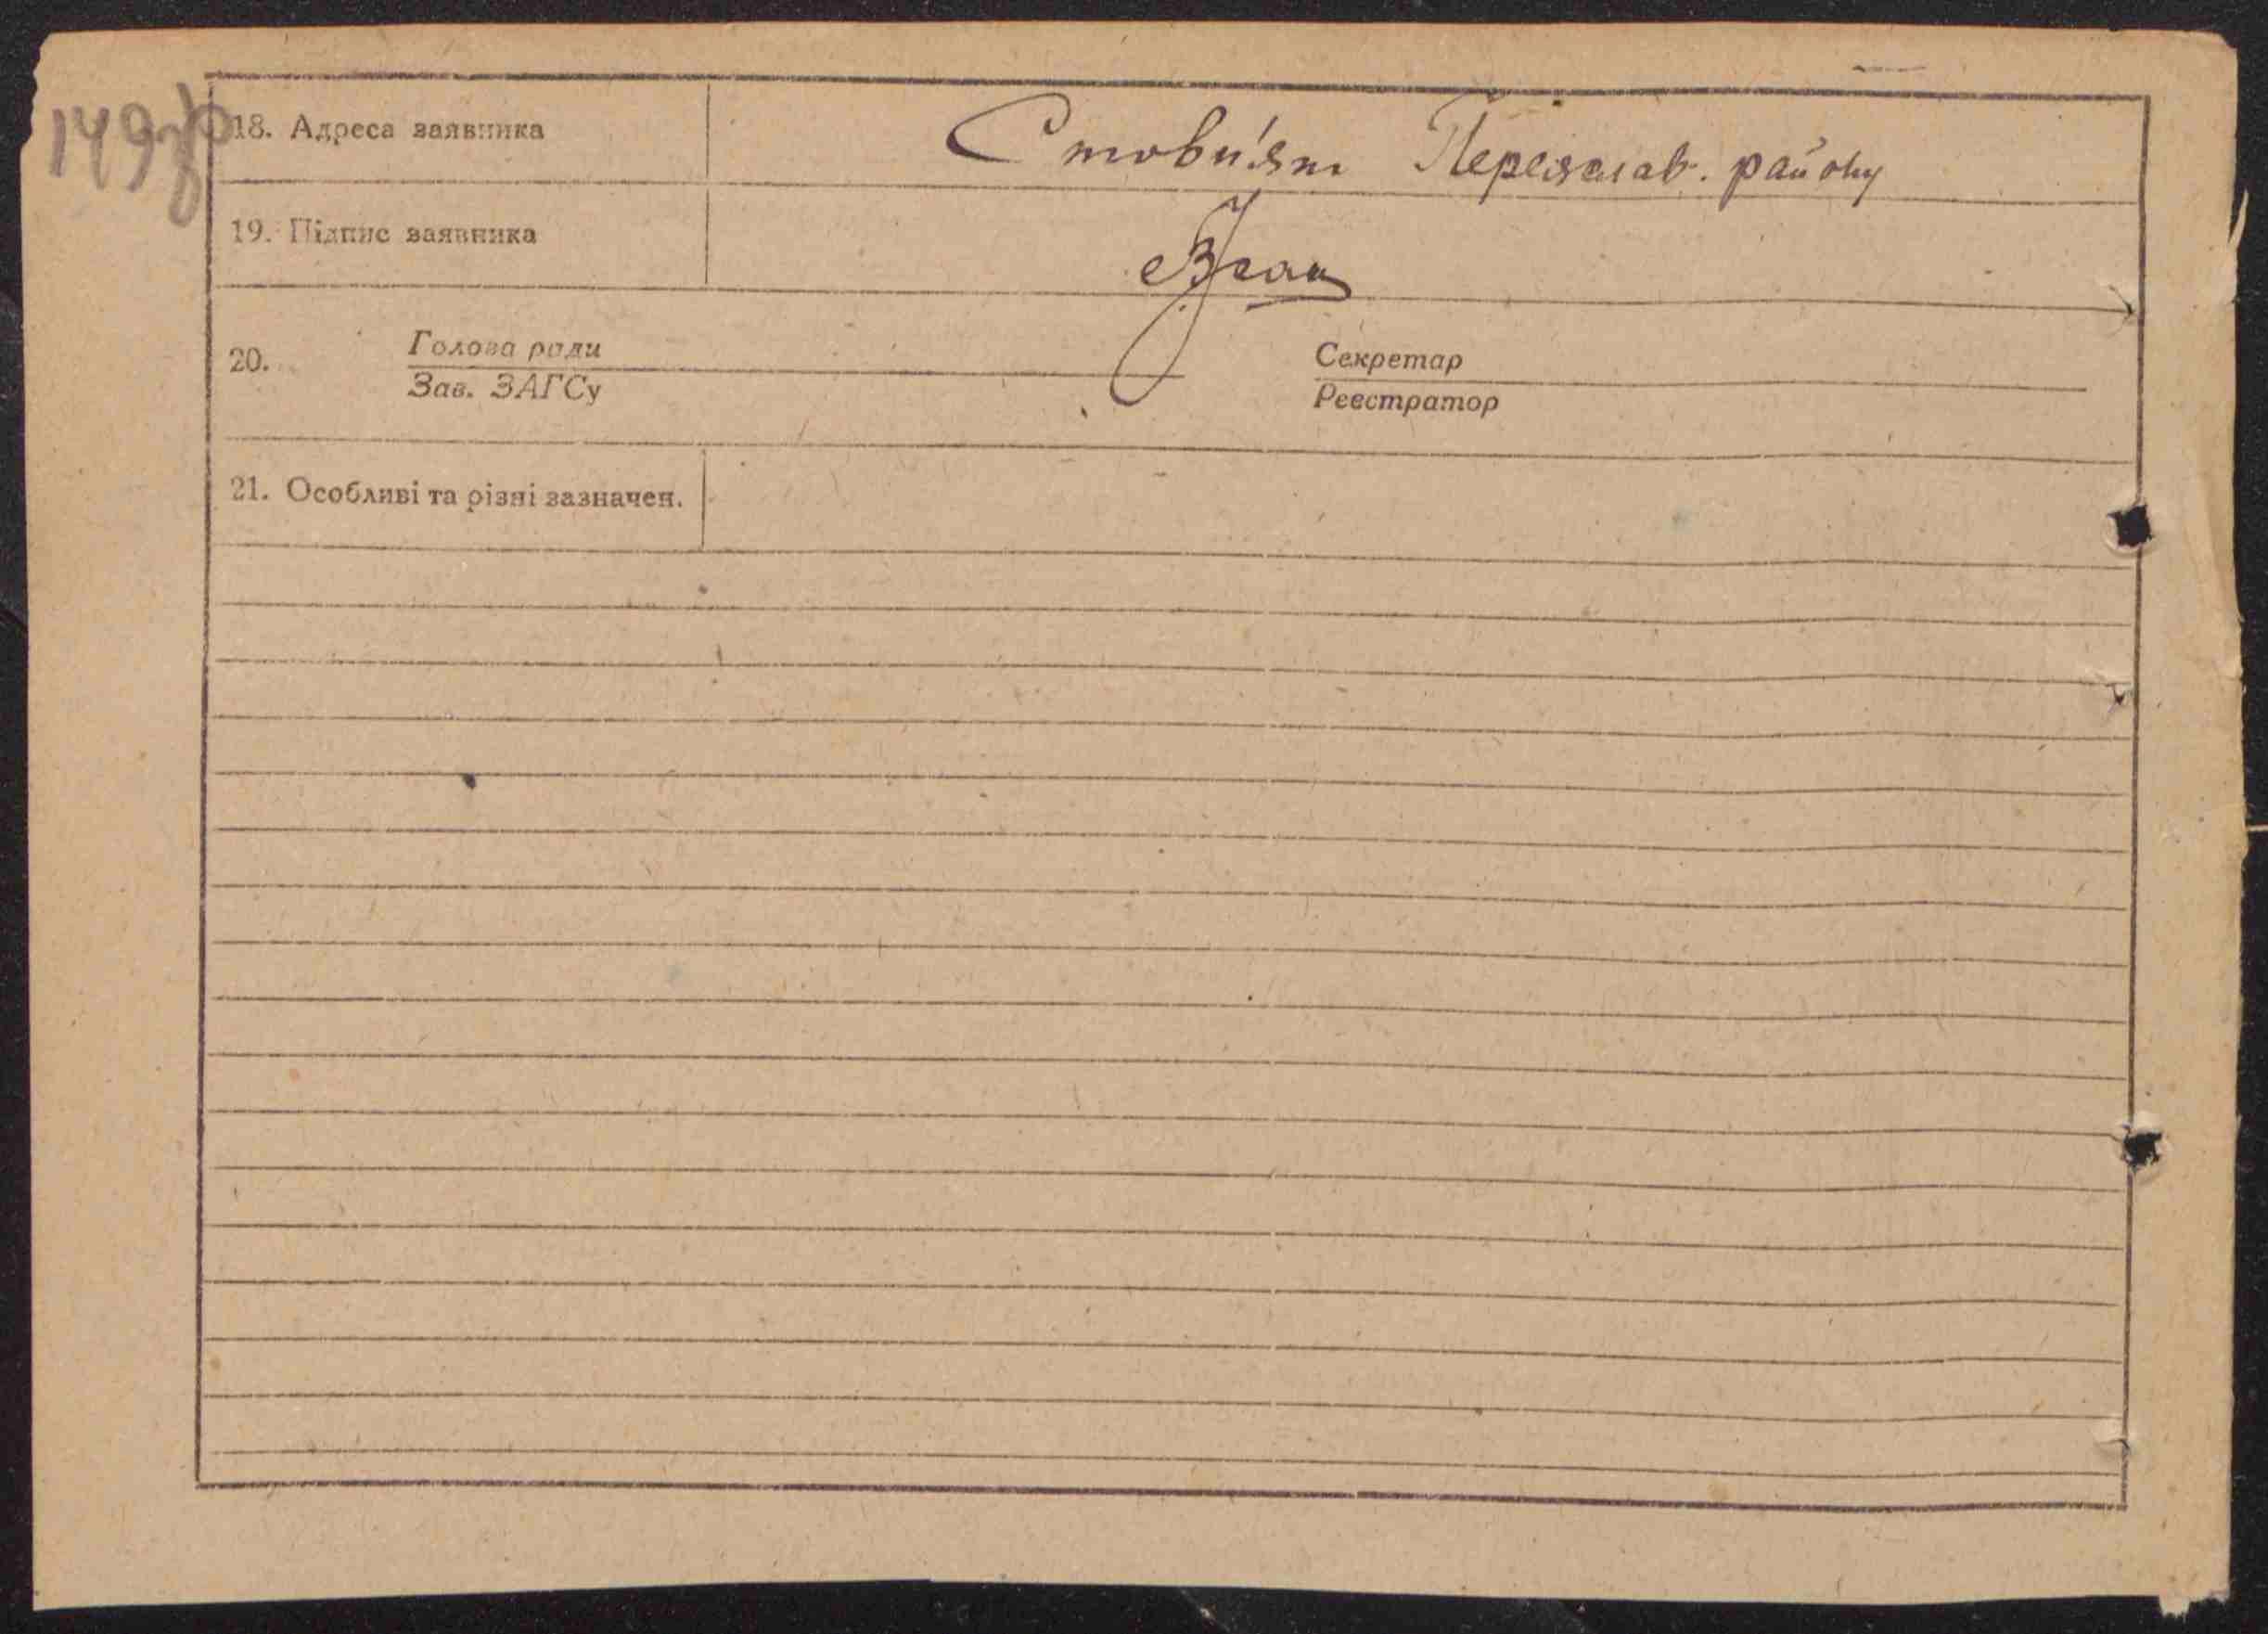 149зв
18. Адреса заявника Стовп'яги Переяслав. району
19. Підпис заявника
20. Голова ради Секретар
Зав. ЗАГСу Реєстратор
21. Особливі та різні зазначен.